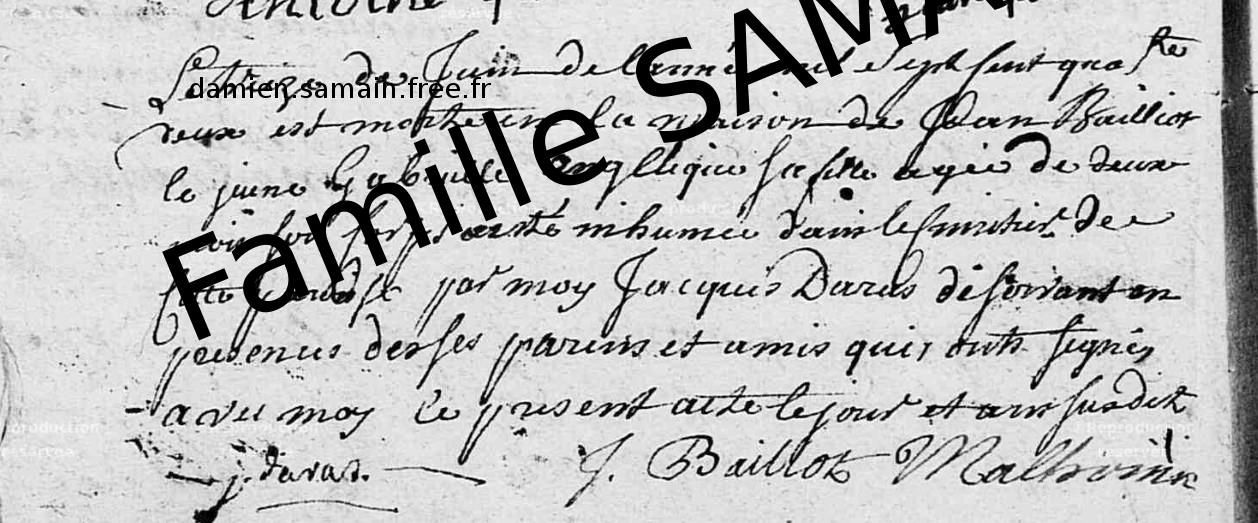 Antoine
Le treize de Juin de l'année mil sept sent qua
deux est morte en la maison de Jean Bailliot
le jeune Gabrielle Angellique sa fille agée de deux
mois son corps a esté inhumée dans le simetier de
cette paroisse par moy Jacques Daras desservant en
presences des ses parens et amis qui onts signés
avec moy le present acte le jour et an susdit
j. daras. J. Baillot
Famille SAMA
damien.samain.free.fr